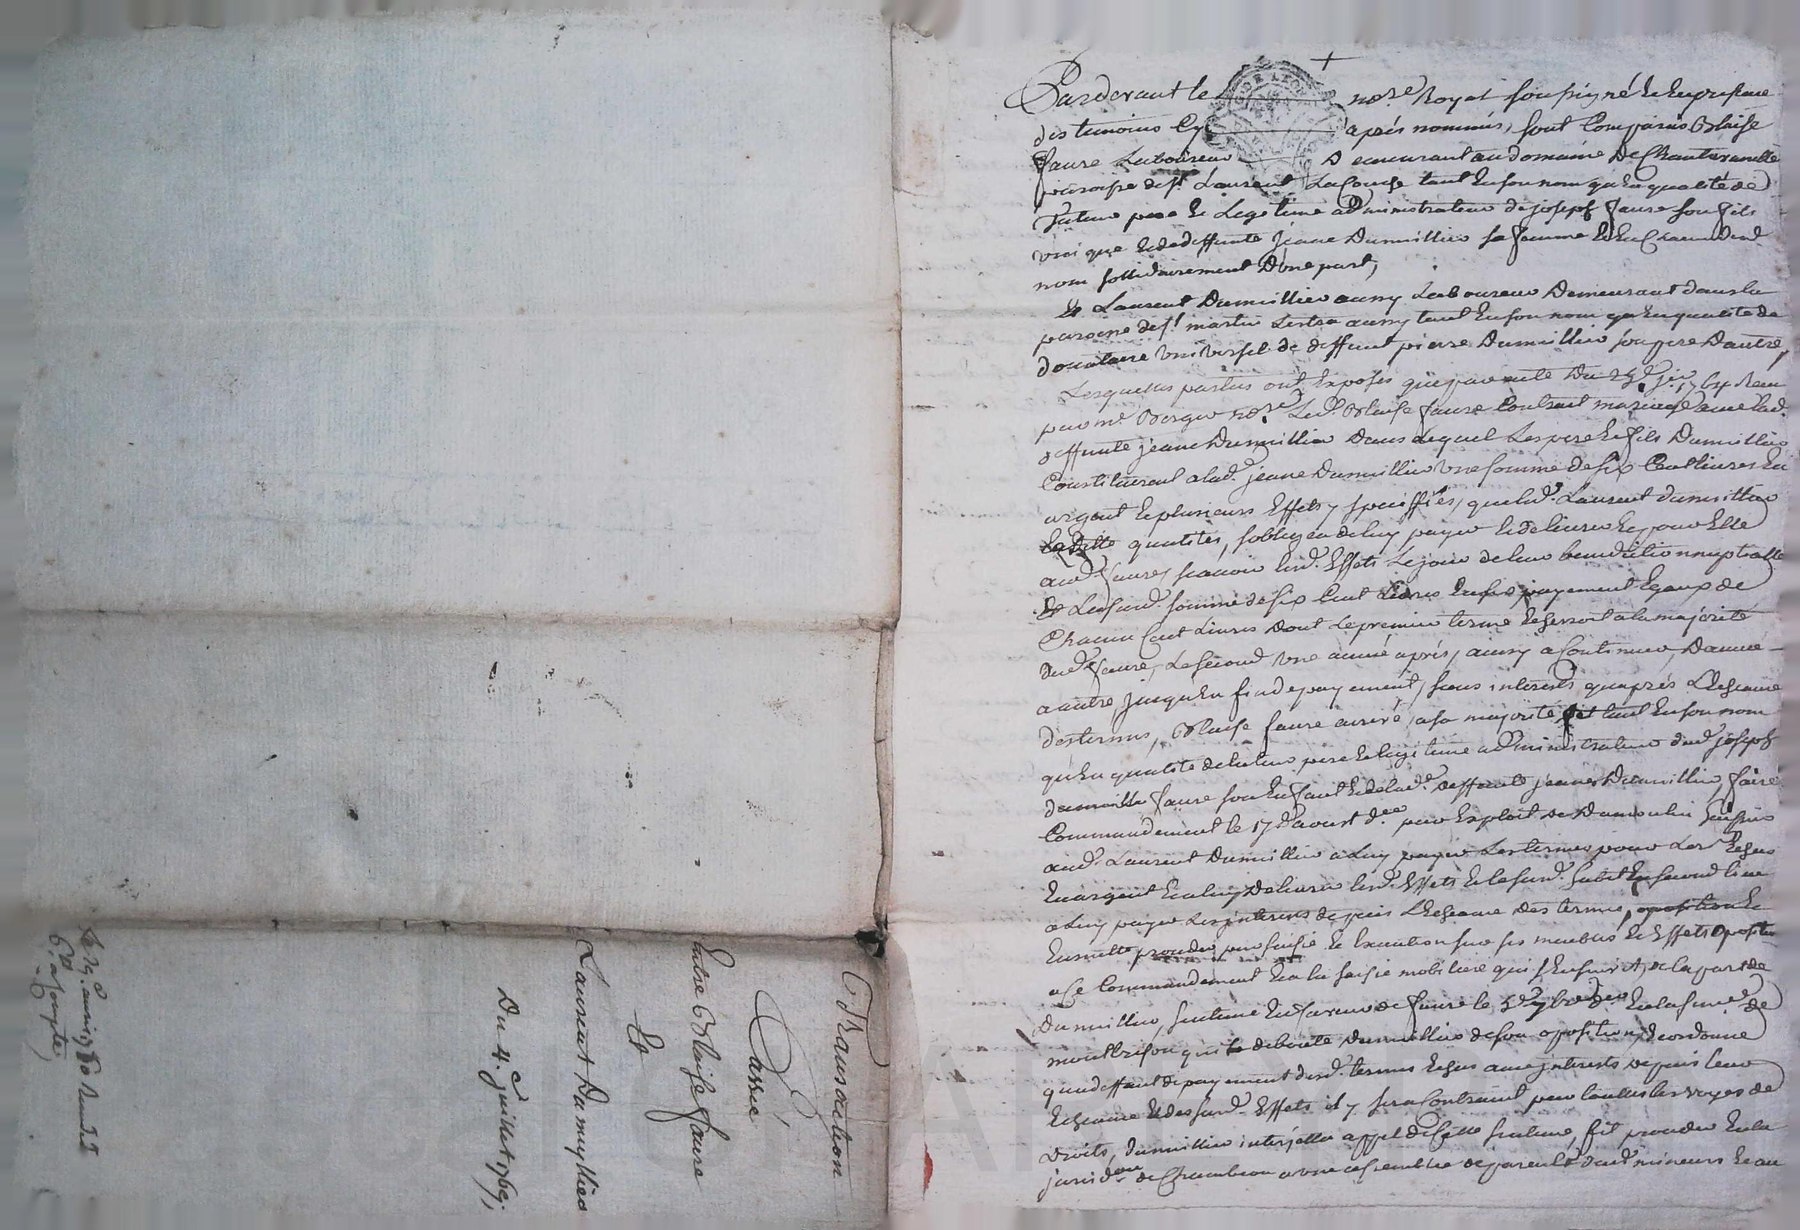 Transaction
Passée
Entre Blaise faure
Et
Laurent Dumyllied
Du 4.e Juillet 1769,
Pardevant le no.re Royal soussigné Et En presence
des temoins Cy après nommés, sont Comparus Blaise
faure Laboureur Demeurant au domaine De Chantereneelle
paroisse de s.t Laurent La Conche tant En son nom qu'En qualité de
Tuteur pere Et Legitime administrateur de joseph faure son fils
Et de deffunte jeanne Dumillieu sa femme
nom sollidairement d'une part,
Et Laurent Dumillieu aussy Laboureur Demeurant dans la
paroisse de s.t martin Lestra aussy tant En son nom qu'En qualité de
donataire Universel de deffunt pierre Dumillieu son pere Dautre,
Lesquelles parties ont Exposés que par acte Du
par m.e no.re Led. Blaise faure Contract mariage avec lad.
deffunte jeanne Dumillieu Dans Lequel Les pere Et fils Dumillieu
Constituerent a lad. jeanne Dumillieu Une somme de six Cent livres En
argent Et plusieurs Effets y speciffiés, que led. Laurent dumillieu
qualités, sobligea de luy payer Et delivrer Et pour Elle
aud. faure, scavoir lesd. Effets Le jour de leur benediction nuptialle
Et La susd. somme de six Cent Livres En six payement Egaux de
Chacun Cent Livres Dont Le premier terme a la majorité
dud. faure, Le second Une année après, aussy a Continuer, Dannée
a autre, jusqu'En fin de payement, sans interests qu'après L'Echeance
des termes, Blaise faure arrivé a sa majorité, tant En son nom
qu'En qualité de tuteur pere Et legitime administrateur dud. joseph
faure son Enfant Et de lad. deffunte jeanne Dumillieu, faire
Commandement le 17.e aoust d.er par Exploit de Dumoulin
aud. Laurent Dumillieu a Luy payer Les termes pour Lors Echus
En argent Et a luy Delivrer lesd. Effets
a Luy payer Les interests depuis L'Echeance des termes,
Ensuitte proceder par saisie Et Execution sur ses meubles Et Effets
a Ce Commandement Et a la saisie mobiliere qui s'Ensuivit, de la part de
Dumillieu, sentence En faveur de faure le de
montbrison qui deboute Dumillieu de son oposition, Et ordonne
qua deffaut de payement desd. termes Echus avec interests depuis leur
Echeance Et des susd. Effets il y sera Contraint par touttes les voyes de
Droits, Dumillieu interjetta appel de Cette sentence, fit proceder En la
de Chambeon a Une assemblée de parents dud. mineurs Et au